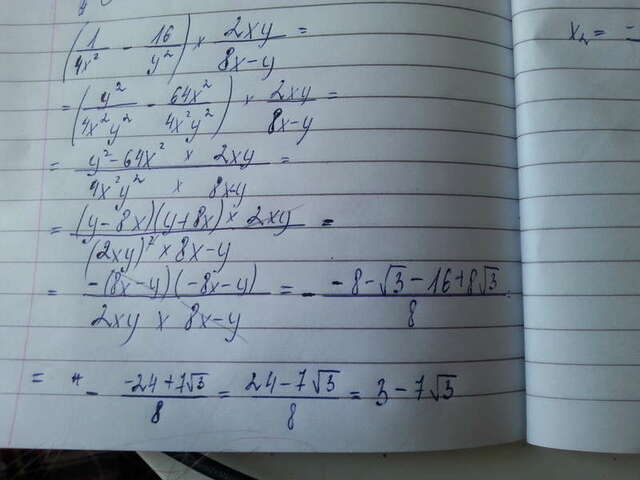 (1/4x² - 16/y²) × 2xy/8x-y =
= (y²/4x²y² - 64x²/4x²y²) × 2xy/8x-y =
= y²-64x² × 2xy / 4x²y² × 8x-y =
= (y-8x)(y+8x) × 2xy / (2xy)² × 8x-y =
= -(8x-y)(-8x-y) / 2xy × 8x-y = - -8-√3-16+8√3 / 8
= - -24+7√3 / 8 = 24-7√3 / 8 = 3-7√3